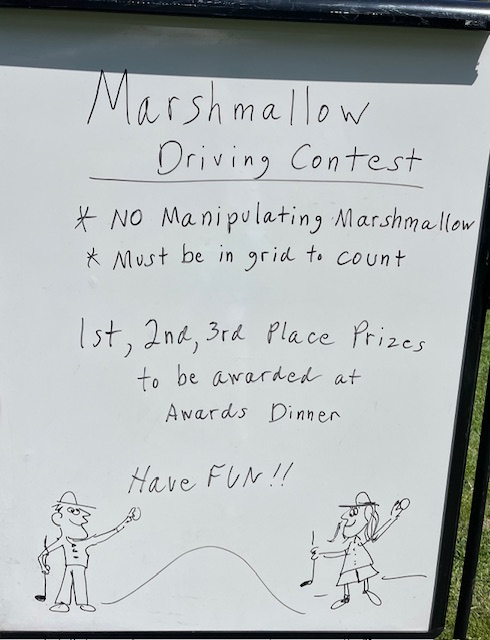 Marshmallow
Driving Contest
* NO Manipulating Marshmallow
* Must be in grid to count
1st, 2nd, 3rd Place Prizes
to be awarded at
Awards Dinner
Have FUN!!